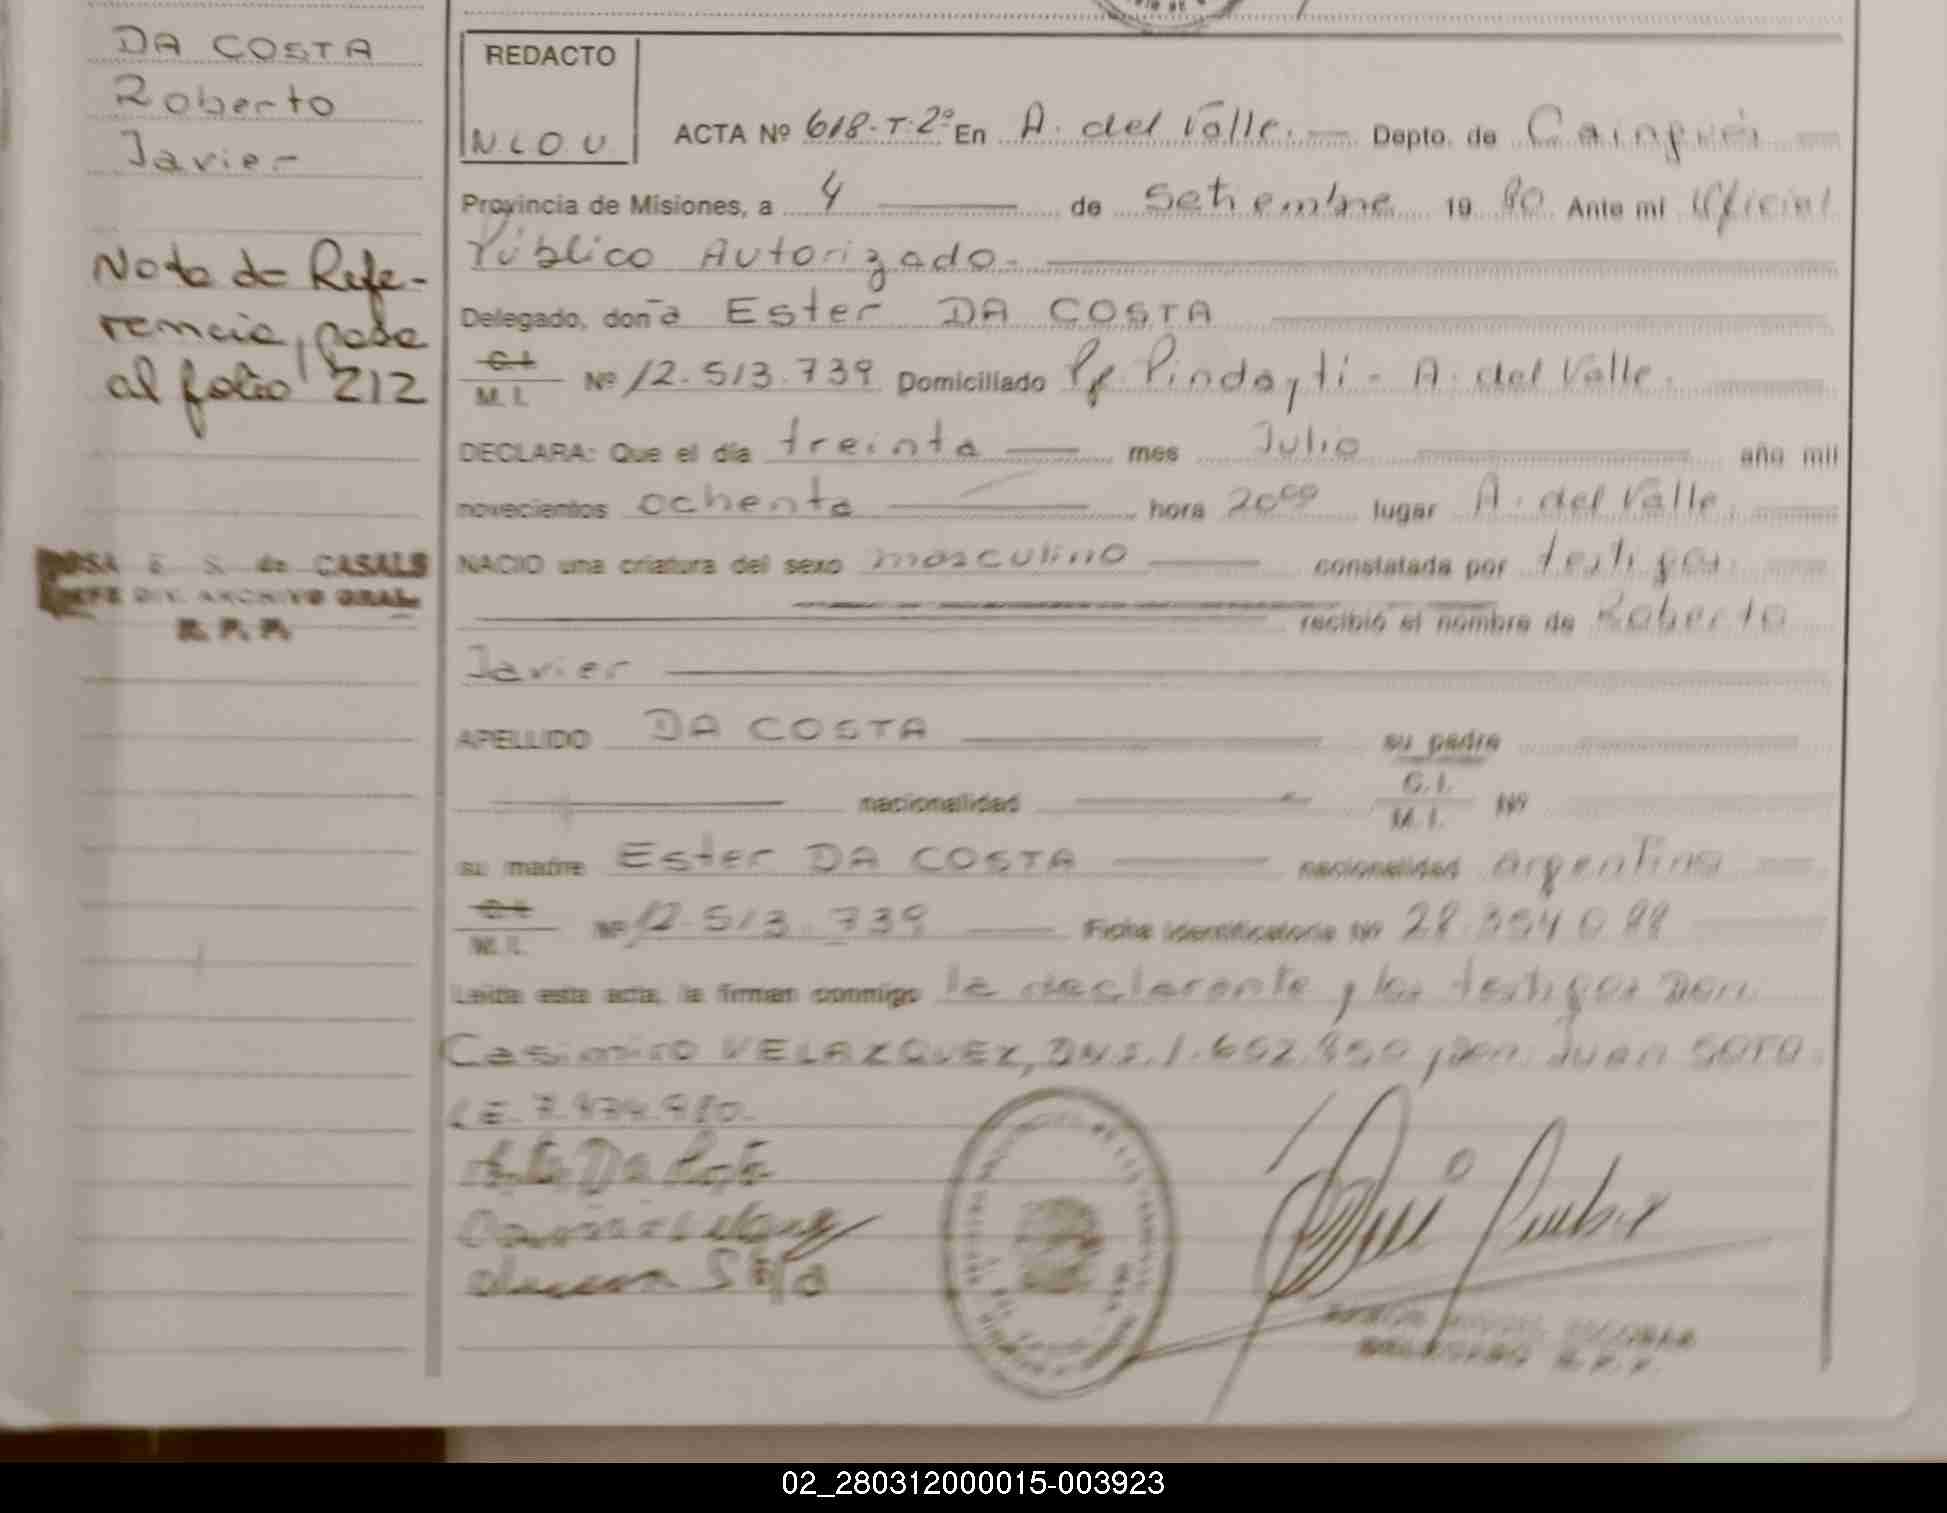 DA COSTA
Roberto
Javier
Nota de Refe-
rencia, pasa
al folio 212
E. S. de CASALS
JEFE DIV. ARCHIVO GRAL.
R. P. P.
REDACTO
N L O U
ACTA Nº 618-T-2º En A. del Valle. Depto. de Cainguás
Provincia de Misiones, a 4 de Setiembre 19 80 Ante mi Oficial
Público Autorizado.
Delegado, doña Ester DA COSTA
C.I. M.I. Nº 12.513.739 Domiciliado Pje. Pindayti - A. del Valle.
DECLARA: Que el día treinta mes Julio año mil
novecientos ochenta hora 20⁰⁰ lugar A. del Valle.
NACIO una criatura del sexo masculino constatada por testigos.
recibió el nombre de Roberto
Javier
APELLIDO DA COSTA su padre
nacionalidad C.I. M.I. Nº
su madre Ester DA COSTA nacionalidad argentina
C.I. M.I. Nº 12.513.739 Ficha identificatoria Nº
Leída esta acta, la firman conmigo la declarante y los testigos Don
Casimiro VELAZQUEZ, D.N.I. y Don Juan SOTO.
L.E.
DELEGADO R. P. P.
02_280312000015-003923